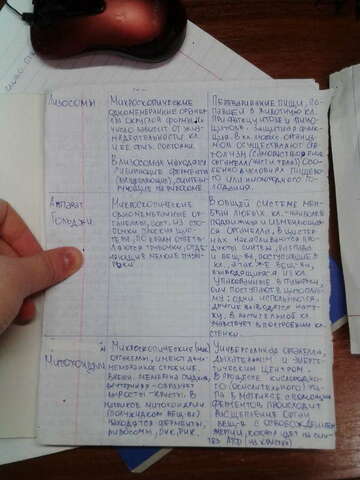 Лизосомы
Микроскопические
одномембранные органел-
лы округлой формы. Их
число зависит от жиз-
недеятельности кл.
и её физ. состояния.
В лизосомах находятся
ферменты
на рибосоме.
Переваривание пищи, по-
павшей в животную кл.
при фагоцитозе и пино-
цитозе. Защитная функ-
ция. В кл. любых организ-
мов осуществляют
в условиях пищево-
го или кислородного го-
лодания.
Аппарат
Гольджи
Микроскопические
одномембранные ор-
ганеллы, сост. из
стопочки плоских цис-
терн, по краям ответв-
ляются трубочки, отде-
ляющие мелкие пузырь-
ки
В общей системе мем-
бран любых кл. - наиболее
подвижная и изменяющаяся
органелла. В цистер-
нах накапливаются про-
дукты синтеза, распада
и вещ-ва, поступившие в
кл., а так же вещ-ва,
выводящиеся из кл.
Упакованные в пузырьки,
они поступают в цитоплаз-
му: одни используются,
другие выводятся нару-
жу. В растительной кл.
участвует в построении кл.
стенки.
Митохондрии
Микроскопические
органеллы, имеют дву-
мембранное строение.
Внешн. мембрана гладкая,
внутренняя - образует
выросты - кристы. В
матриксе митохондрии
(полужидком вещ-ве)
находятся ферменты,
рибосомы, ДНК, РНК.
Универсальная органелла,
дыхательным и энерге-
тическим центром.
В процессе кислородно-
го (окислительного) эта-
па в матриксе с помощью
ферментов происходит
расщепление орган.
вещ-в с освобождением
энергии, которая идёт на син-
тез АТФ (на кристах)